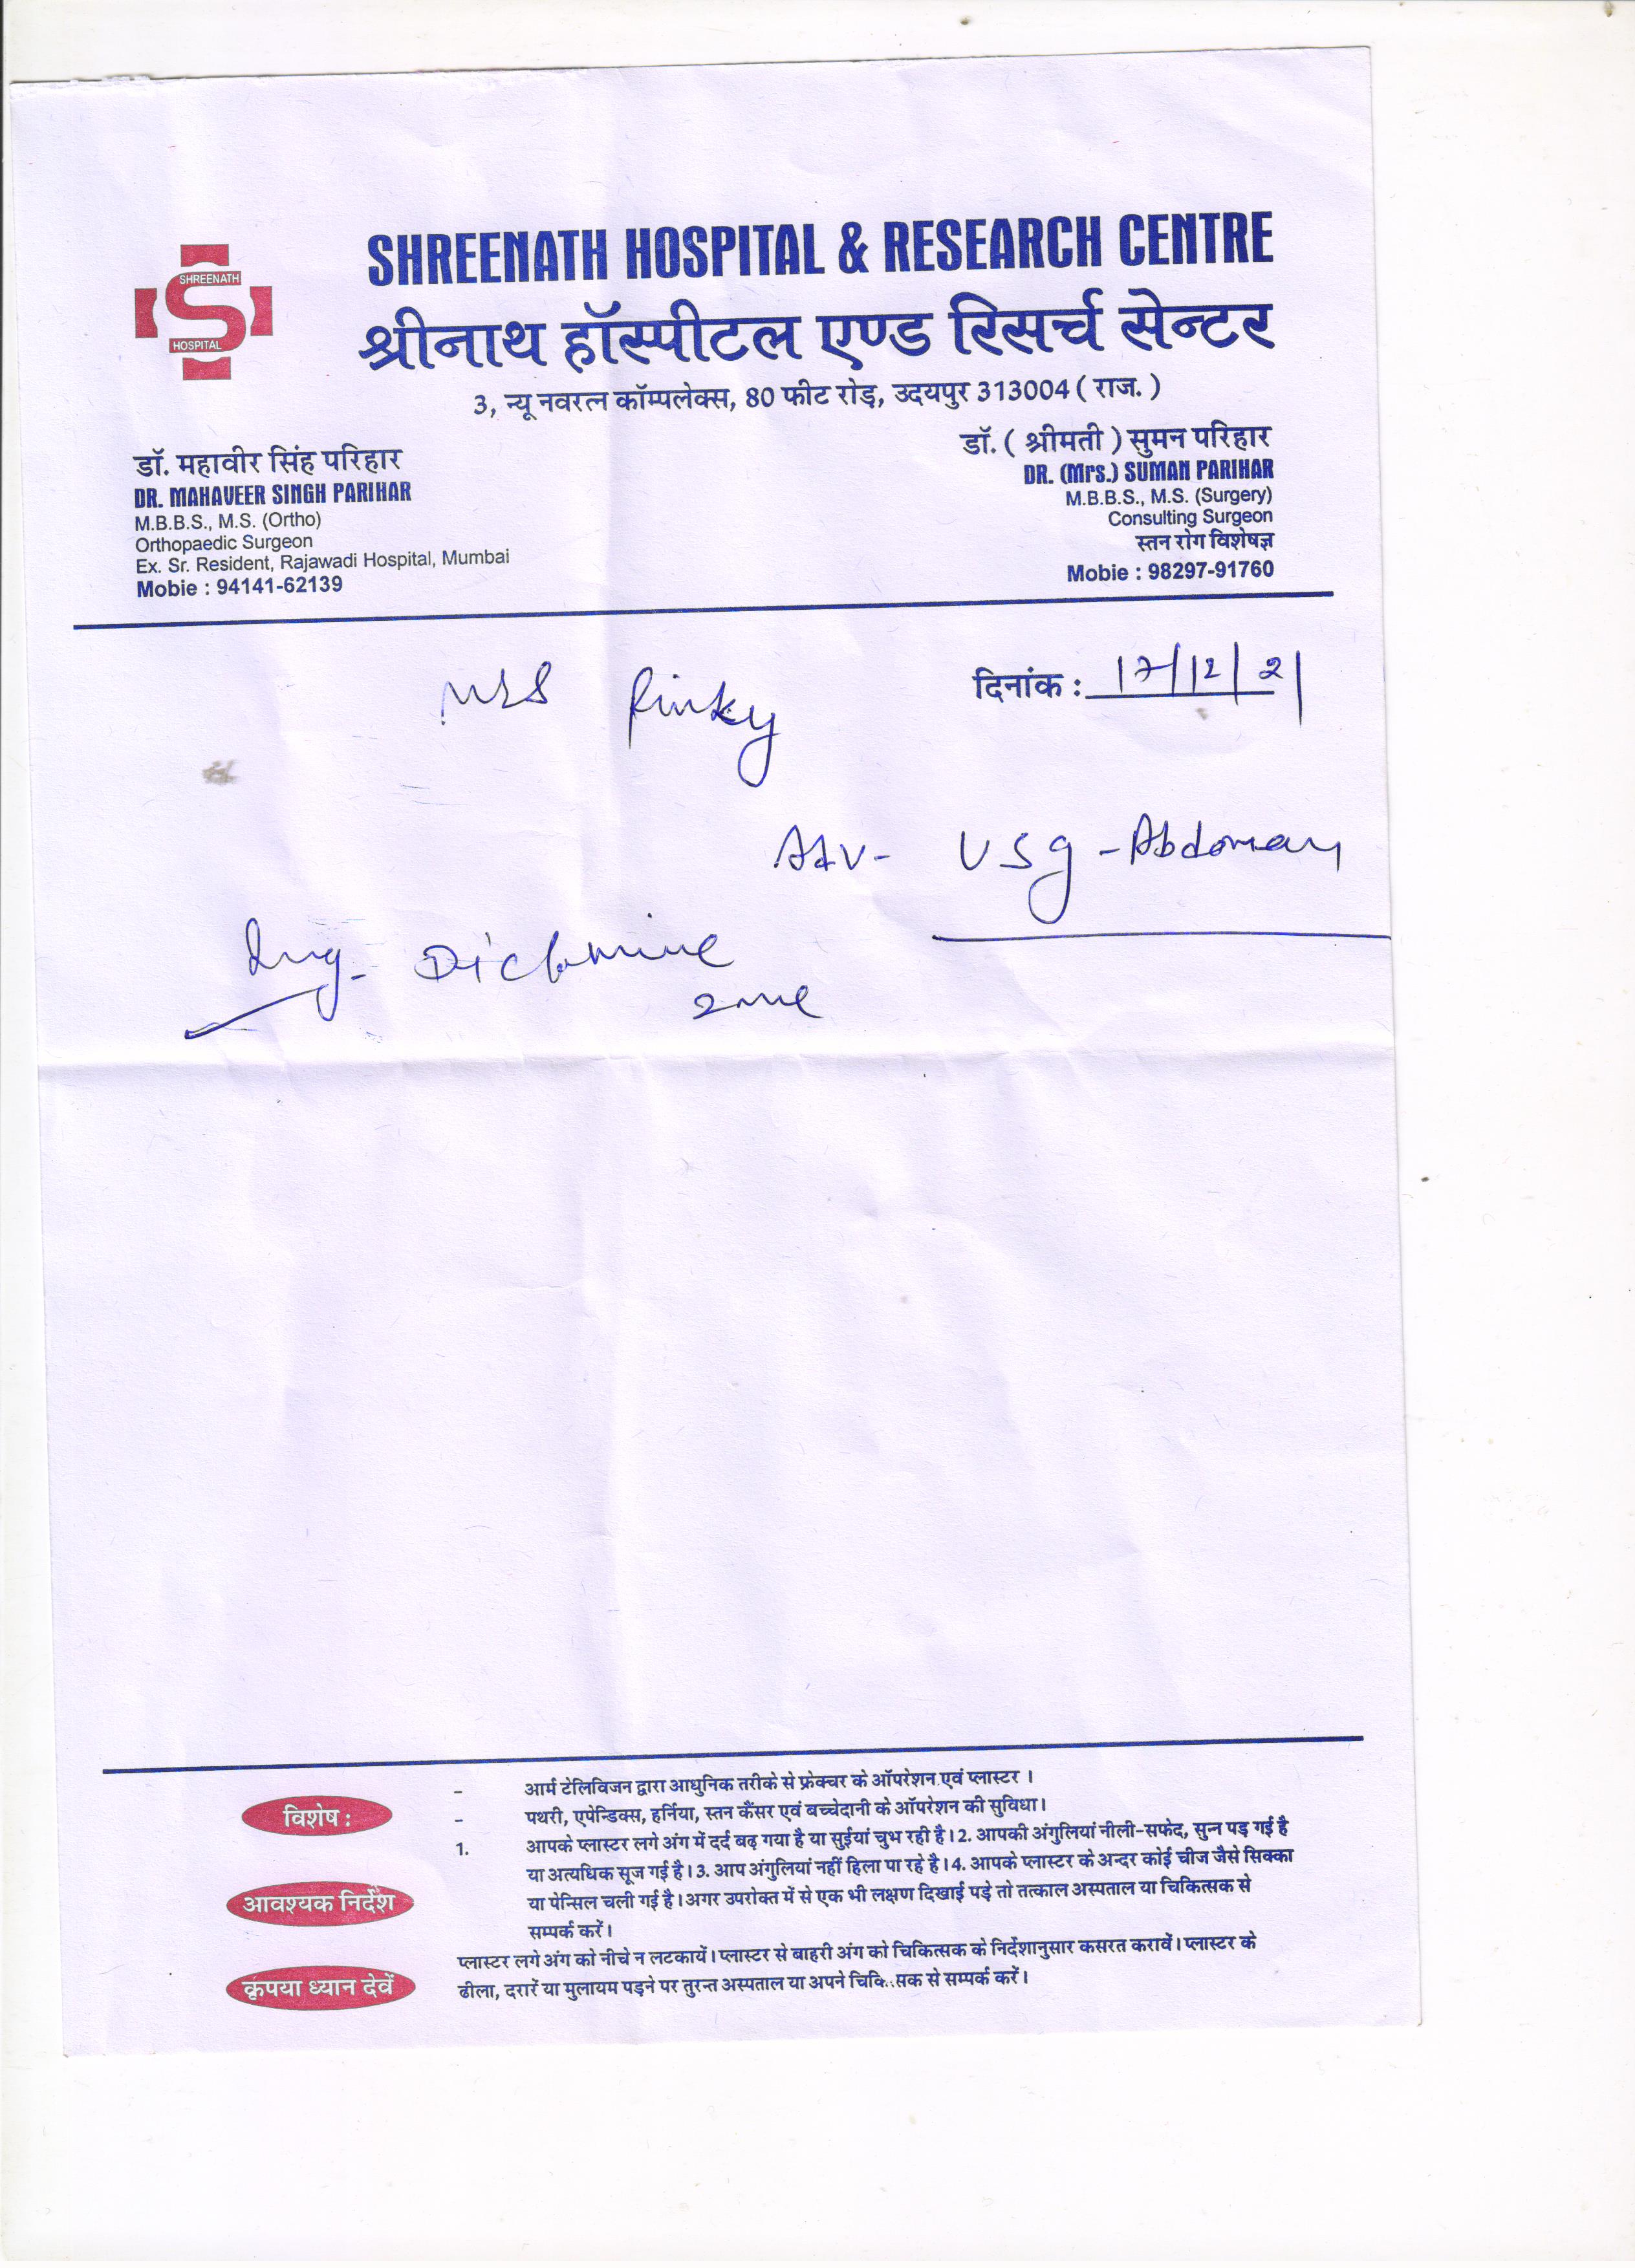 SHREENATH
HOSPITAL
SHREENATH HOSPITAL & RESEARCH CENTRE
श्रीनाथ हॉस्पीटल एण्ड रिसर्च सेन्टर
3, न्यू नवरत्न कॉम्पलेक्स, 80 फीट रोड़, उदयपुर 313004 ( राज. )
डॉ. महावीर सिंह परिहार
DR. MAHAVEER SINGH PARIHAR
M.B.B.S., M.S. (Ortho)
Orthopaedic Surgeon
Ex. Sr. Resident, Rajawadi Hospital, Mumbai
Mobie : 94141-62139
डॉ. ( श्रीमती ) सुमन परिहार
DR. (Mrs.) SUMAN PARIHAR
M.B.B.S., M.S. (Surgery)
Consulting Surgeon
स्तन रोग विशेषज्ञ
Mobie : 98297-91760
Mrs Pinky
दिनांक : 17/12/21
Adv- USg - Abdomen
Inj-
विशेष :
- आर्म टेलिविजन द्वारा आधुनिक तरीके से फ्रेक्चर के ऑपरेशन एवं प्लास्टर ।
- पथरी, एपेन्डिक्स, हर्निया, स्तन कैंसर एवं बच्चेदानी के ऑपरेशन की सुविधा।
आवश्यक निर्देश
1. आपके प्लास्टर लगे अंग में दर्द बढ़ गया है या सुईयां चुभ रही है। 2. आपकी अंगुलियां नीली-सफेद, सुन्न पड़ गई है
या अत्यधिक सूज गई है। 3. आप अंगुलियां नहीं हिला पा रहे है। 4. आपके प्लास्टर के अन्दर कोई चीज जैसे सिक्का
या पेन्सिल चली गई है। अगर उपरोक्त में से एक भी लक्षण दिखाई पड़े तो तत्काल अस्पताल या चिकित्सक से
सम्पर्क करें।
कृपया ध्यान देवें
प्लास्टर लगे अंग को नीचे न लटकायें। प्लास्टर से बाहरी अंग को चिकित्सक के निर्देशानुसार कसरत करावें। प्लास्टर के
ढीला, दरारें या मुलायम पड़ने पर तुरन्त अस्पताल या अपने चिकित्सक से सम्पर्क करें।